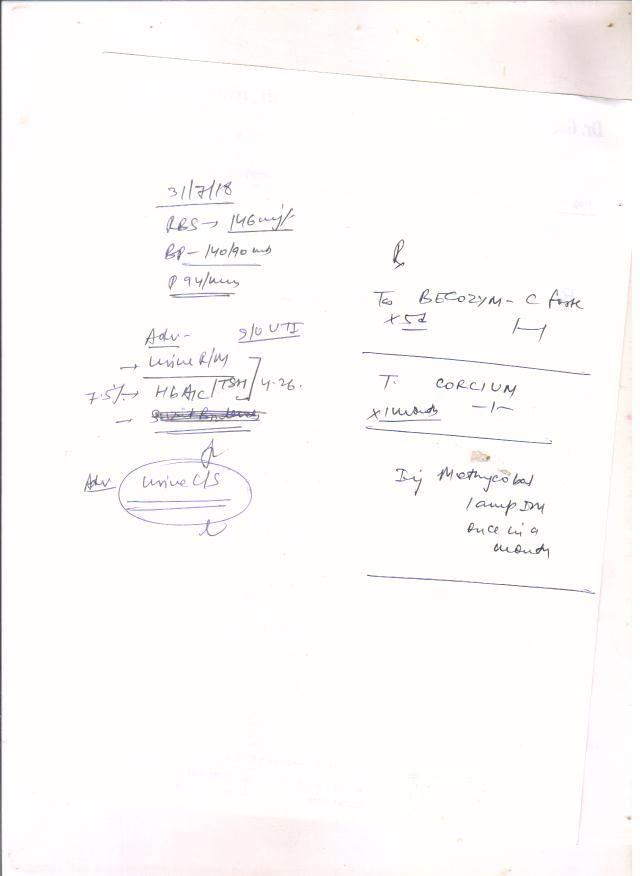 31/7/18
RBS → 146 mg/-
BP - 140/90 mm
P 94/min
Adv - s/o UTI
→ urine R/M
7.5% → HbA1C / TSH 4.26.
→
Adv urine C/S
Rx
Tab BECOZYM - C forte
x 5d
T. CORCIUM
x 1 month -1-
Inj Methycobal
1 amp IM
once in a
month
Dr. G